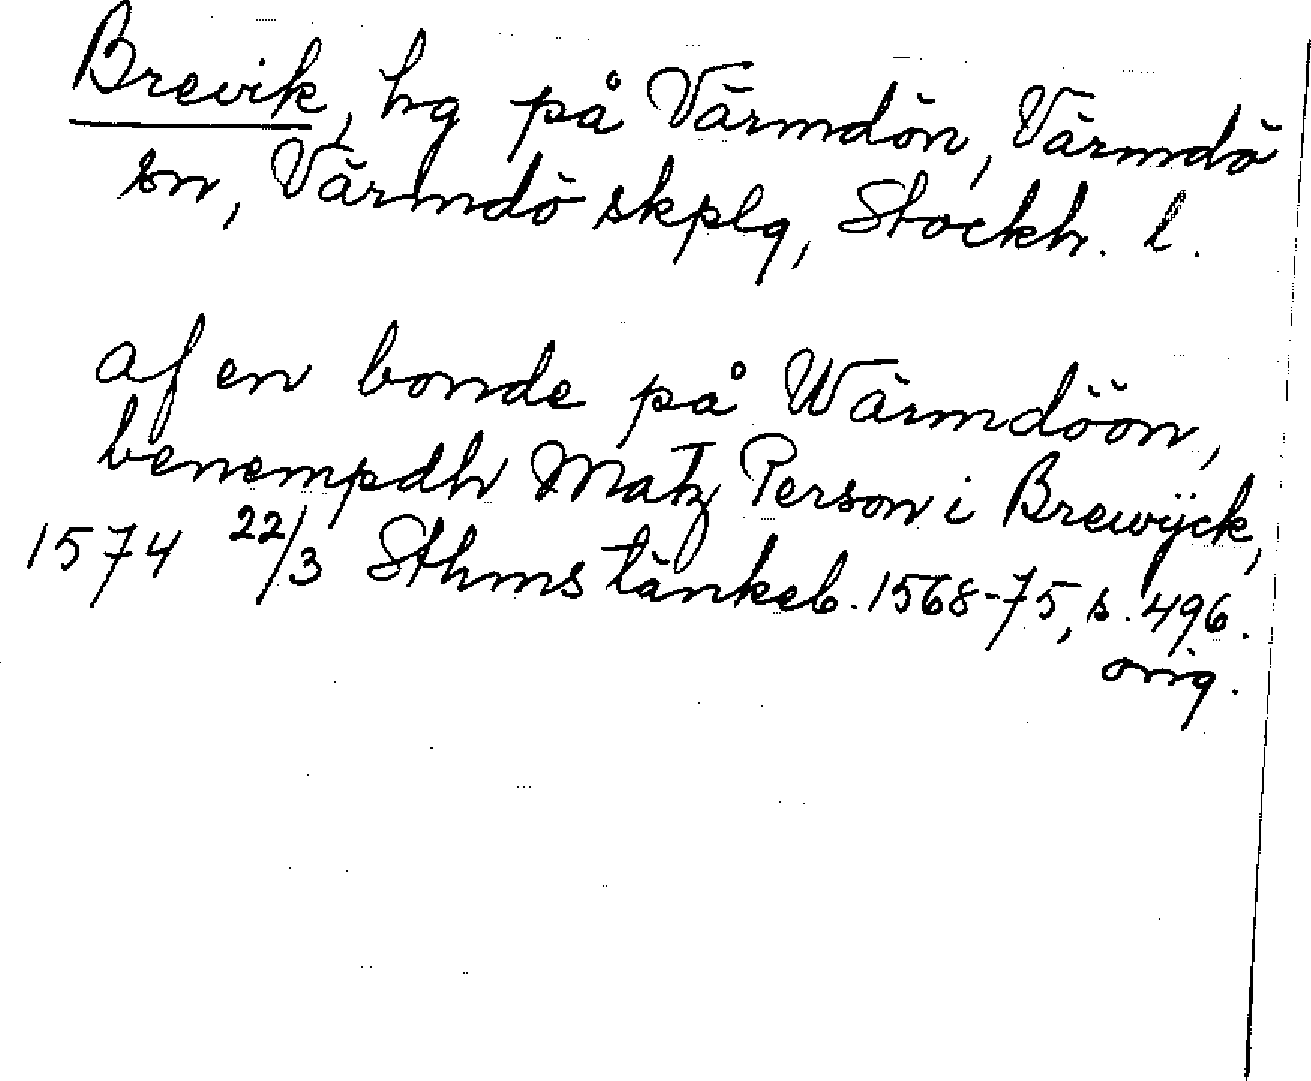 Brevik, hg på Värmdön, Värmdö
sn, Värmdö skplg, Stockh. l.
af en bonde på Wärmdöön,
benempdh Matz Person i Brewÿck,
1574 22/3 Sthms tänkeb. 1568-75, s. 496.
orig.